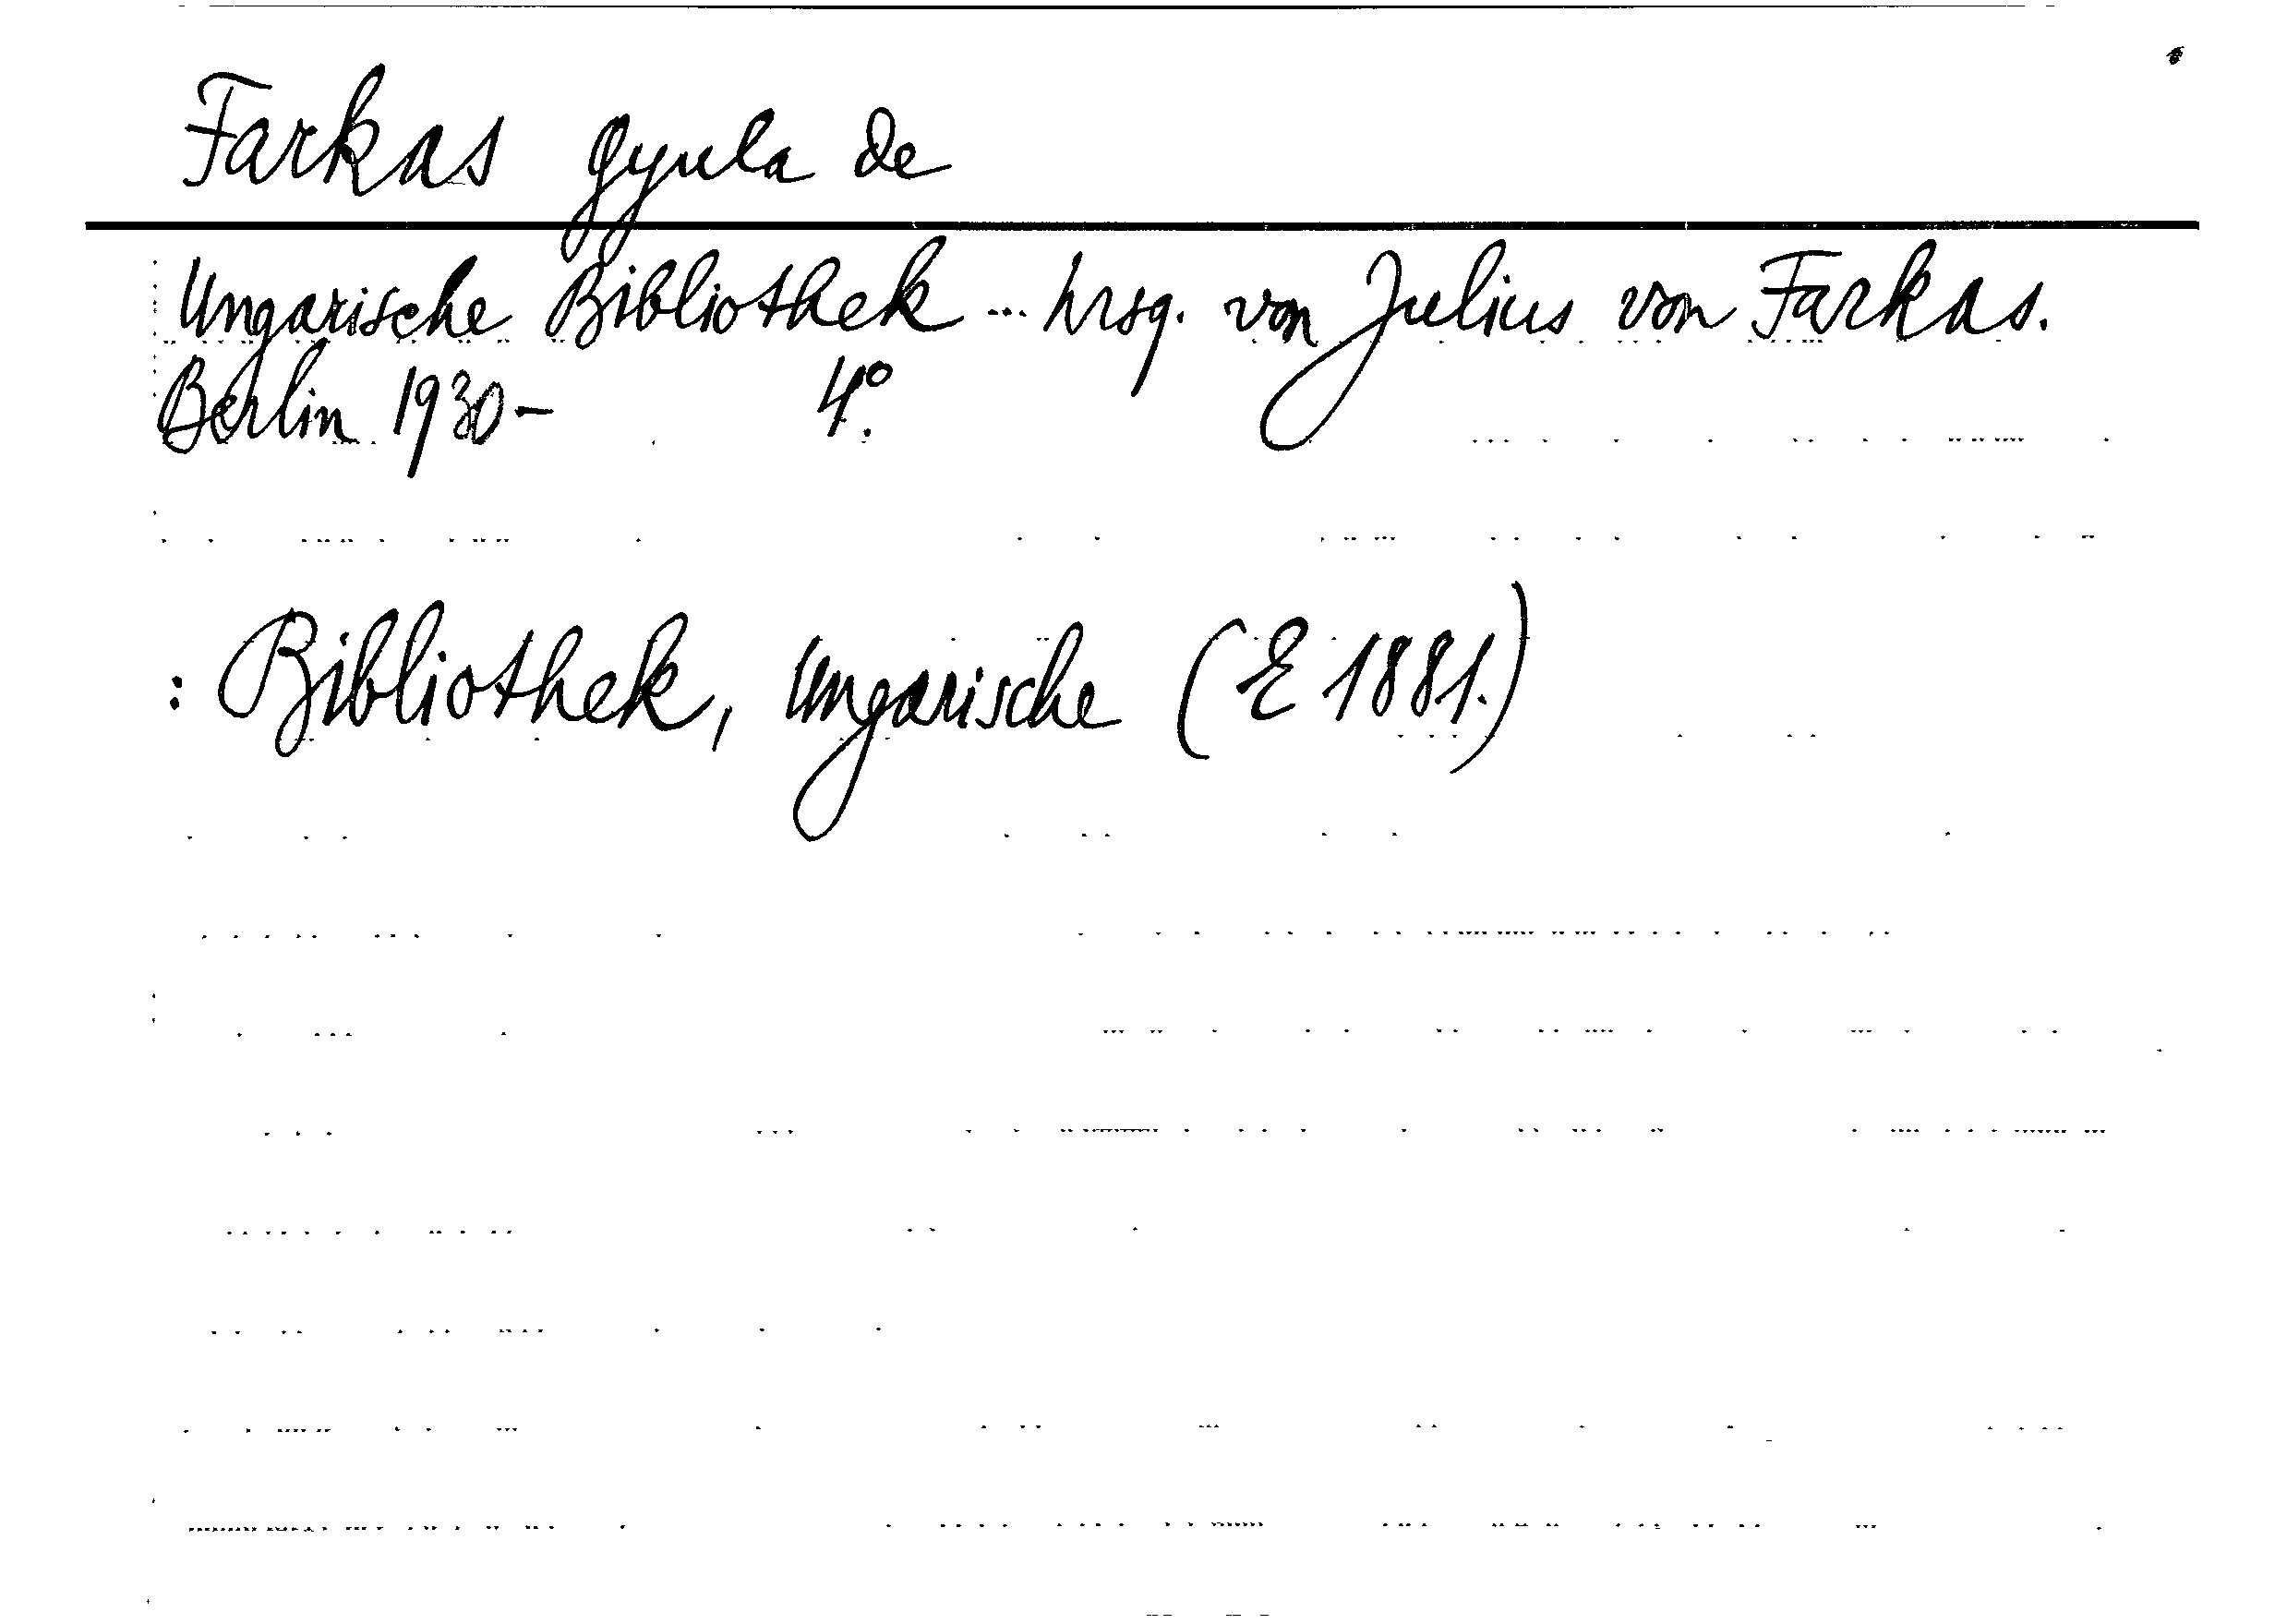 Farkas Gyula de
Ungarische Bibliothek ... hrsg. von Julius von Farkas.
Berlin 1930- 4°.
: Bibliothek, Ungarische (E 1881.)